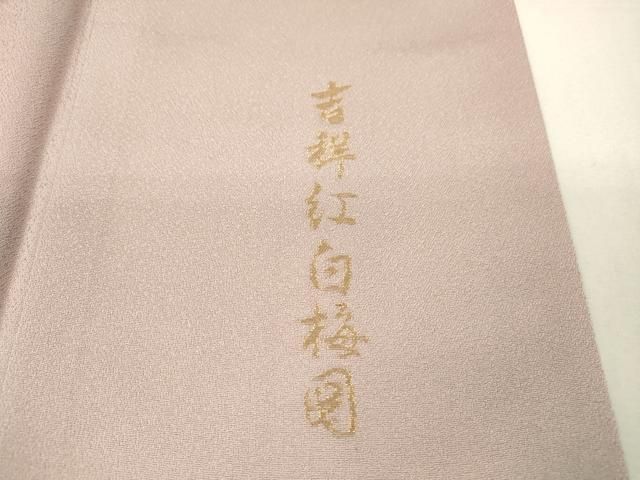 吉祥紅白梅図